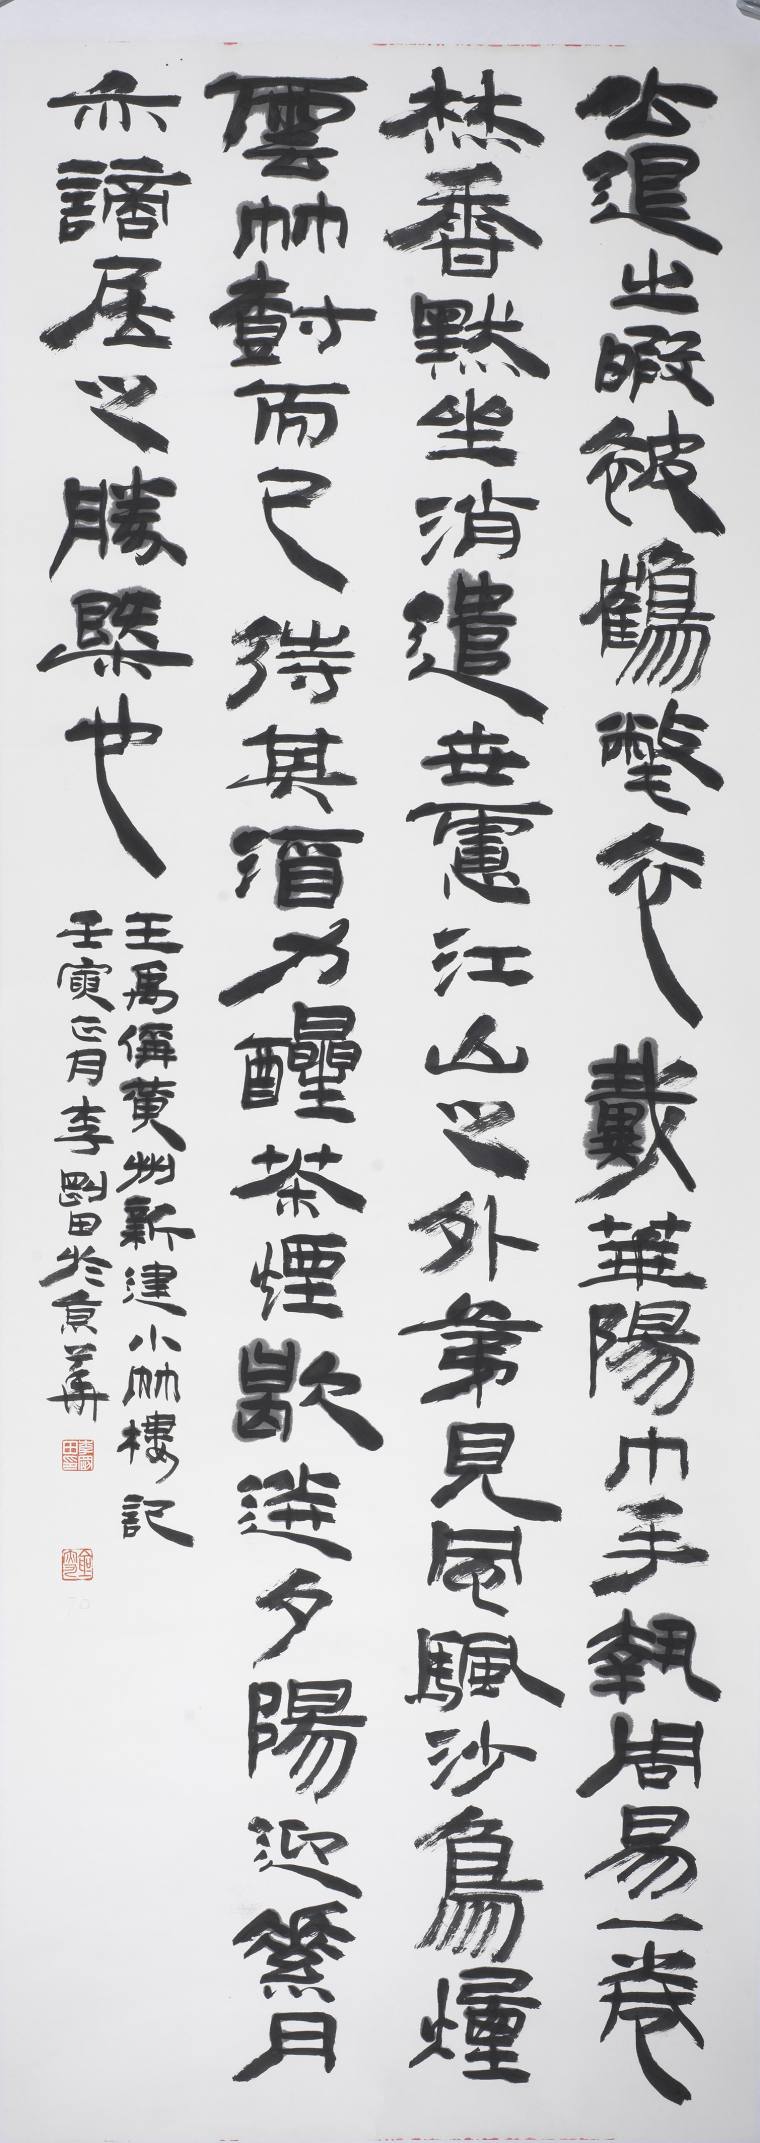 公退之暇被鶴氅衣戴華陽巾手執周易一卷
焚香默坐消遣世慮江山之外第見風颿沙鳥煙
雲竹樹而已待其酒力醒茶煙歇送夕陽迎素月
亦謫居之勝槩也
王禹偁黃州新建小竹樓記
壬寅正月李剛田於京華
李剛田印